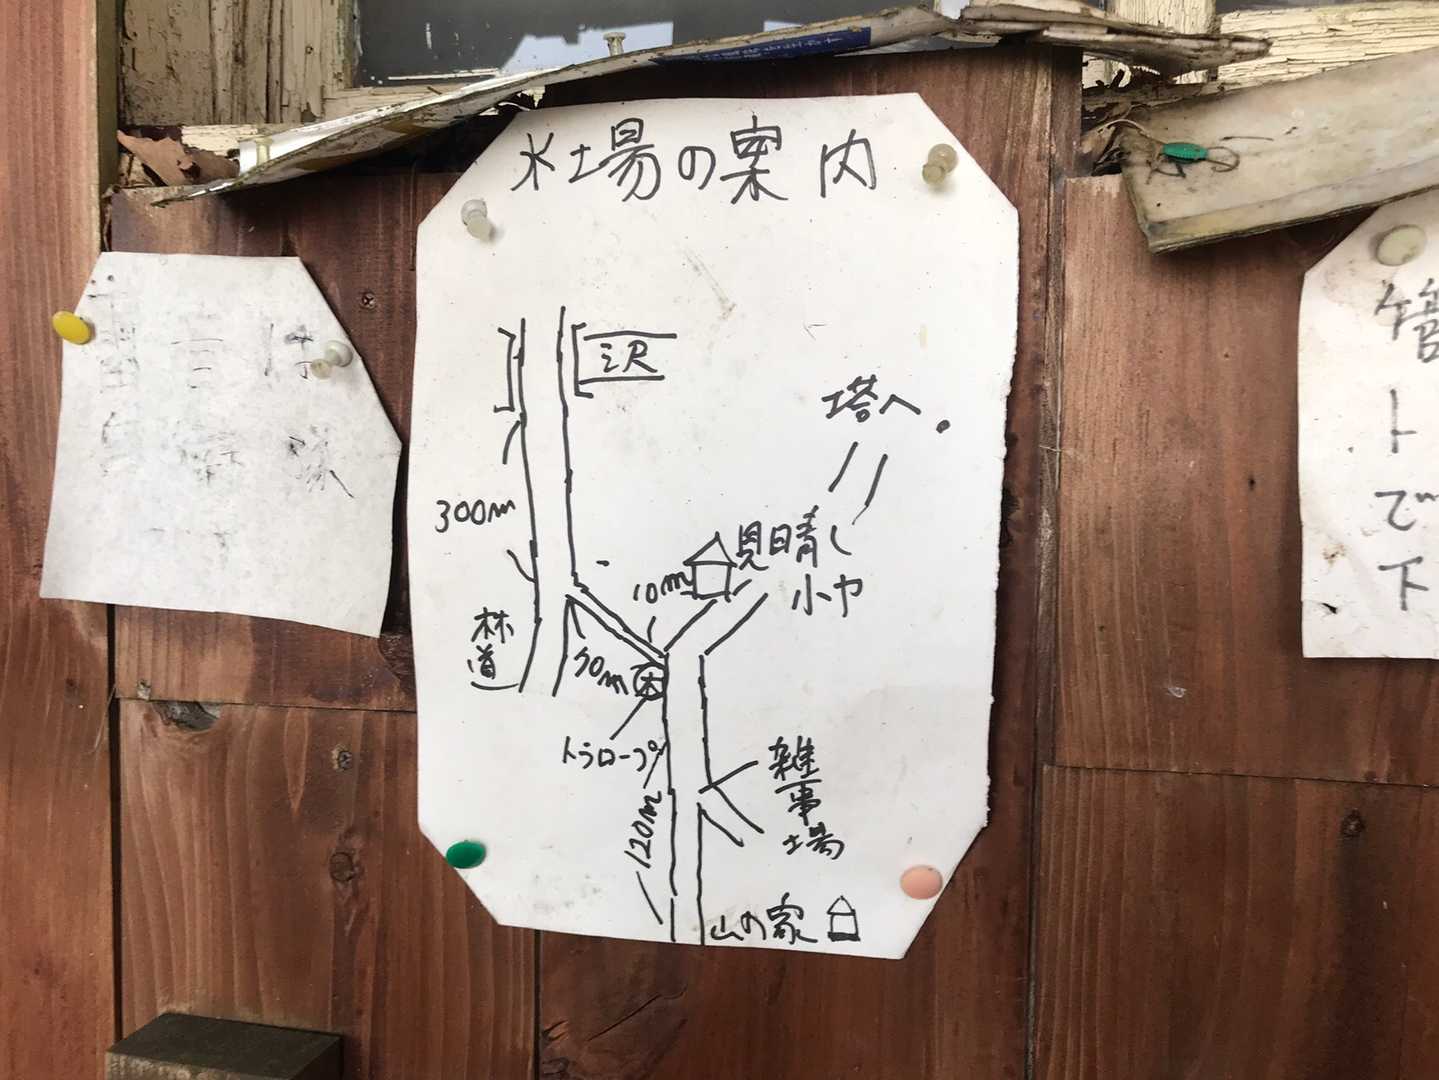 水場の案内
沢
塔へ
300m
見晴し
小ヤ
10m
林
道
70m
木
トラロープ
雑
事
場
120m
山の家
管
ト
で
下